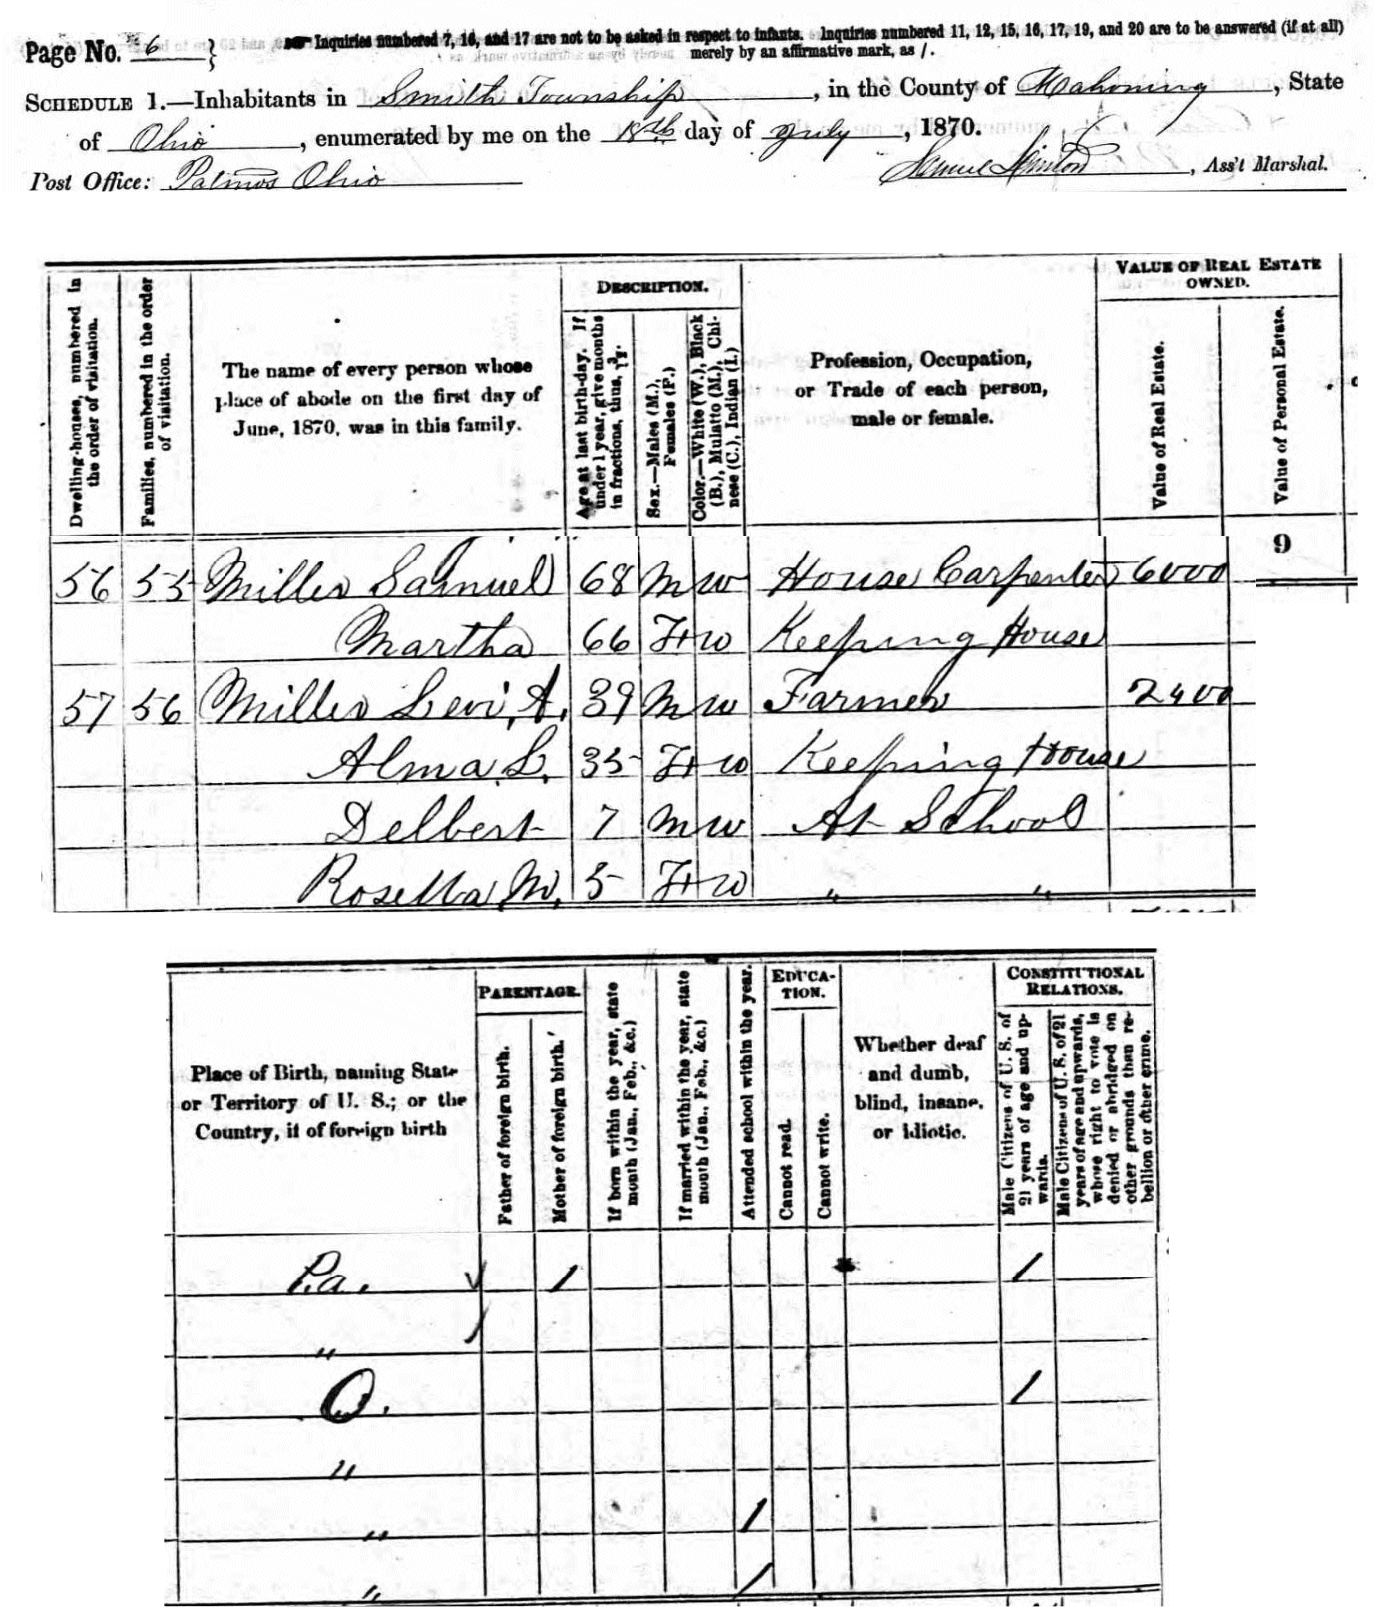 Page No. 6 } Inquiries numbered 7, 16, and 17 are not to be asked in respect to infants. Inquiries numbered 11, 12, 15, 16, 17, 19, and 20 are to be answered (if at all)
merely by an affirmative mark, as /.
SCHEDULE 1.—Inhabitants in Smith Township, in the County of Mahoning, State
of Ohio, enumerated by me on the 18th day of July, 1870.
Post Office: Palmos Ohio Samuel Hinton, Ass't Marshal.
Dwelling-houses, numbered in the order of visitation.
Families, numbered in the order of visitation.
The name of every person whose
place of abode on the first day of
June, 1870, was in this family.
DESCRIPTION.
Age at last birth-day. If under 1 year, give months in fractions, thus, 3/12.
Sex.—Males (M.), Females (F.)
Color.—White (W.), Black (B.), Mulatto (M.), Chinese (C.), Indian (I.)
Profession, Occupation,
or Trade of each person,
male or female.
VALUE OF REAL ESTATE
OWNED.
Value of Real Estate.
Value of Personal Estate.
9
56 55 Miller Samuel 68 M W House Carpenter 6000
Martha 66 F W Keeping House
57 56 Miller Levi, A. 39 M W Farmer 2400
Alma L. 35 F W Keeping House
Delbert 7 M W At School
Rosella M. 5 F W " "
Place of Birth, naming State
or Territory of U. S.; or the
Country, if of foreign birth
PARENTAGE.
Father of foreign birth.
Mother of foreign birth.
If born within the year, state month (Jan., Feb., &c.)
If married within the year, state month (Jan., Feb., &c.)
Attended school within the year.
EDUCA-
TION.
Cannot read.
Cannot write.
Whether deaf
and dumb,
blind, insane,
or idiotic.
CONSTITUTIONAL
RELATIONS.
Male Citizens of U. S. of 21 years of age and upwards.
Male Citizens of U. S. of 21 years of age and upwards, whose right to vote is denied or abridged on other grounds than rebellion or other crime.
Pa. / /
"
O. /
"
" /
" /